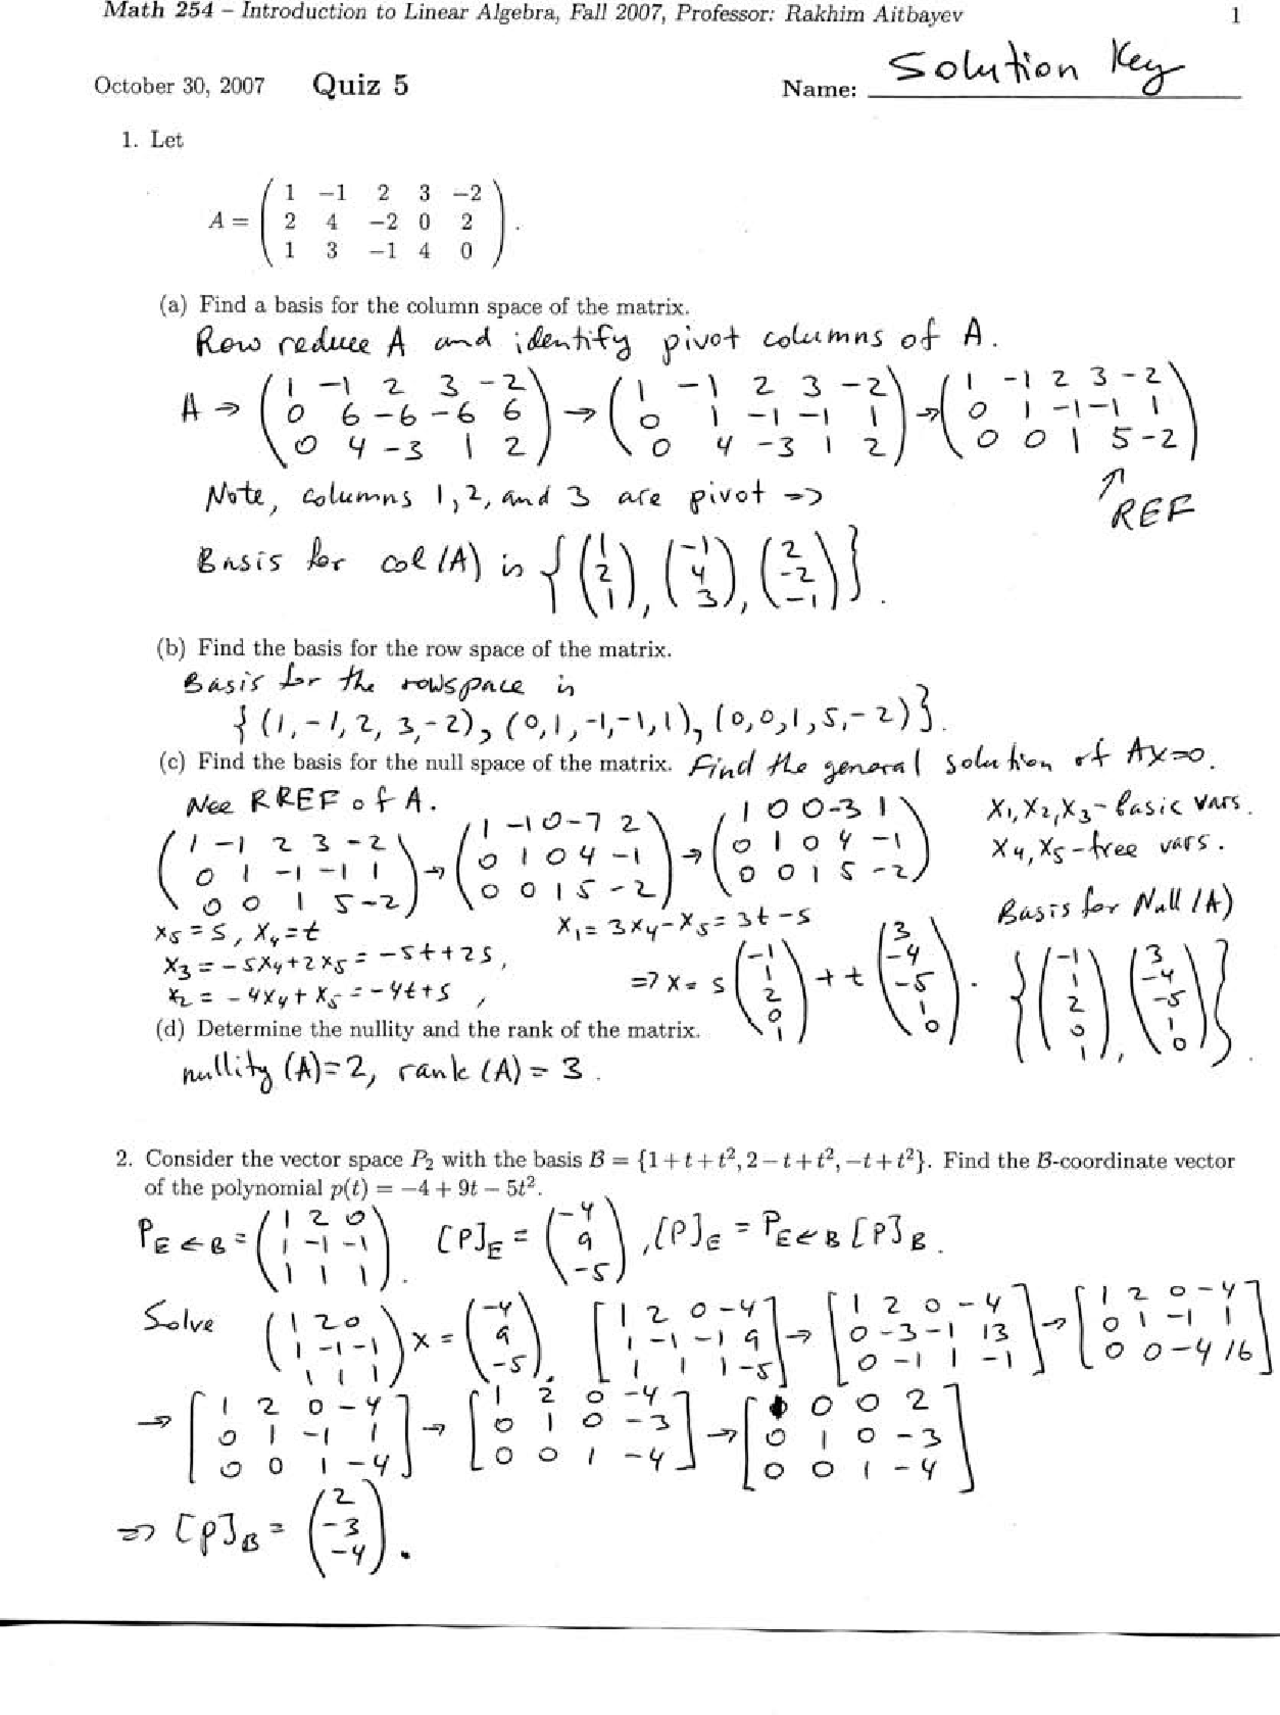 Math 254 – Introduction to Linear Algebra, Fall 2007, Professor: Rakhim Aitbayev 1
October 30, 2007 Quiz 5 Name: Solution Key
1. Let
A = ( 1 −1 2 3 −2
2 4 −2 0 2
1 3 −1 4 0 ) .
(a) Find a basis for the column space of the matrix.
Row reduce A and identify pivot columns of A.
A → ( 1 -1 2 3 -2 ) → ( 1 -1 2 3 -2 ) → ( 1 -1 2 3 -2 )
( 0 6 -6 -6 6 ) ( 0 1 -1 -1 1 ) ( 0 1 -1 -1 1 )
( 0 4 -3 1 2 ) ( 0 4 -3 1 2 ) ( 0 0 1 5 -2 )
Note, columns 1, 2, and 3 are pivot => ↑ REF
Basis for col(A) is { (1 2 1), (-1 4 3), (2 -2 -1) }.
(b) Find the basis for the row space of the matrix.
Basis for the rowspace is
{ (1, -1, 2, 3, -2), (0, 1, -1, -1, 1), (0, 0, 1, 5, -2) }.
(c) Find the basis for the null space of the matrix. Find the general solution of Ax=0.
Nee RREF of A.
( 1 -1 2 3 -2 ) → ( 1 -1 0 -7 2 ) → ( 1 0 0 -3 1 ) x1, x2, x3 - basic vars.
( 0 1 -1 -1 1 ) ( 0 1 0 4 -1 ) ( 0 1 0 4 -1 ) x4, x5 - free vars.
( 0 0 1 5 -2 ) ( 0 0 1 5 -2 ) ( 0 0 1 5 -2 )
x5 = s, x4 = t x1 = 3x4 - x5 = 3t - s Basis for Null(A)
x3 = -5x4 + 2x5 = -5t + 2s,
x2 = -4x4 + x5 = -4t + s, => x = s (-1 1 2 0 1) + t (3 -4 -5 1 0). { (-1 1 2 0 1), (3 -4 -5 1 0) }.
(d) Determine the nullity and the rank of the matrix.
nullity (A) = 2, rank (A) = 3.
2. Consider the vector space P₂ with the basis B = {1+t+t², 2−t+t², −t+t²}. Find the B-coordinate vector
of the polynomial p(t) = −4 + 9t − 5t².
P E←B = ( 1 2 0 ; 1 -1 -1 ; 1 1 1 ). [P]E = (-4 9 -5), [P]E = P E←B [P]B.
Solve ( 1 2 0 ; 1 -1 -1 ; 1 1 1 ) x = (-4 9 -5). [ 1 2 0 -4 ; 1 -1 -1 9 ; 1 1 1 -5 ] → [ 1 2 0 -4 ; 0 -3 -1 13 ; 0 -1 1 -1 ] → [ 1 2 0 -4 ; 0 1 -1 1 ; 0 0 -4 16 ]
→ [ 1 2 0 -4 ; 0 1 -1 1 ; 0 0 1 -4 ] → [ 1 2 0 -4 ; 0 1 0 -3 ; 0 0 1 -4 ] → [ 1 0 0 2 ; 0 1 0 -3 ; 0 0 1 -4 ]
=> [p]B = (2 -3 -4).